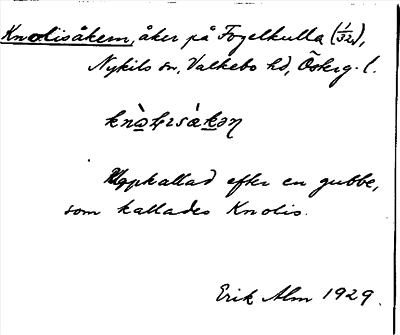 Knolisåkern, åker på Fogelkulla (1/32),
Nykils sn, Valkebo hd, Österg. l.
Uppkallad efter en gubbe,
som kallades Knolis.
Erik Alm 1929.